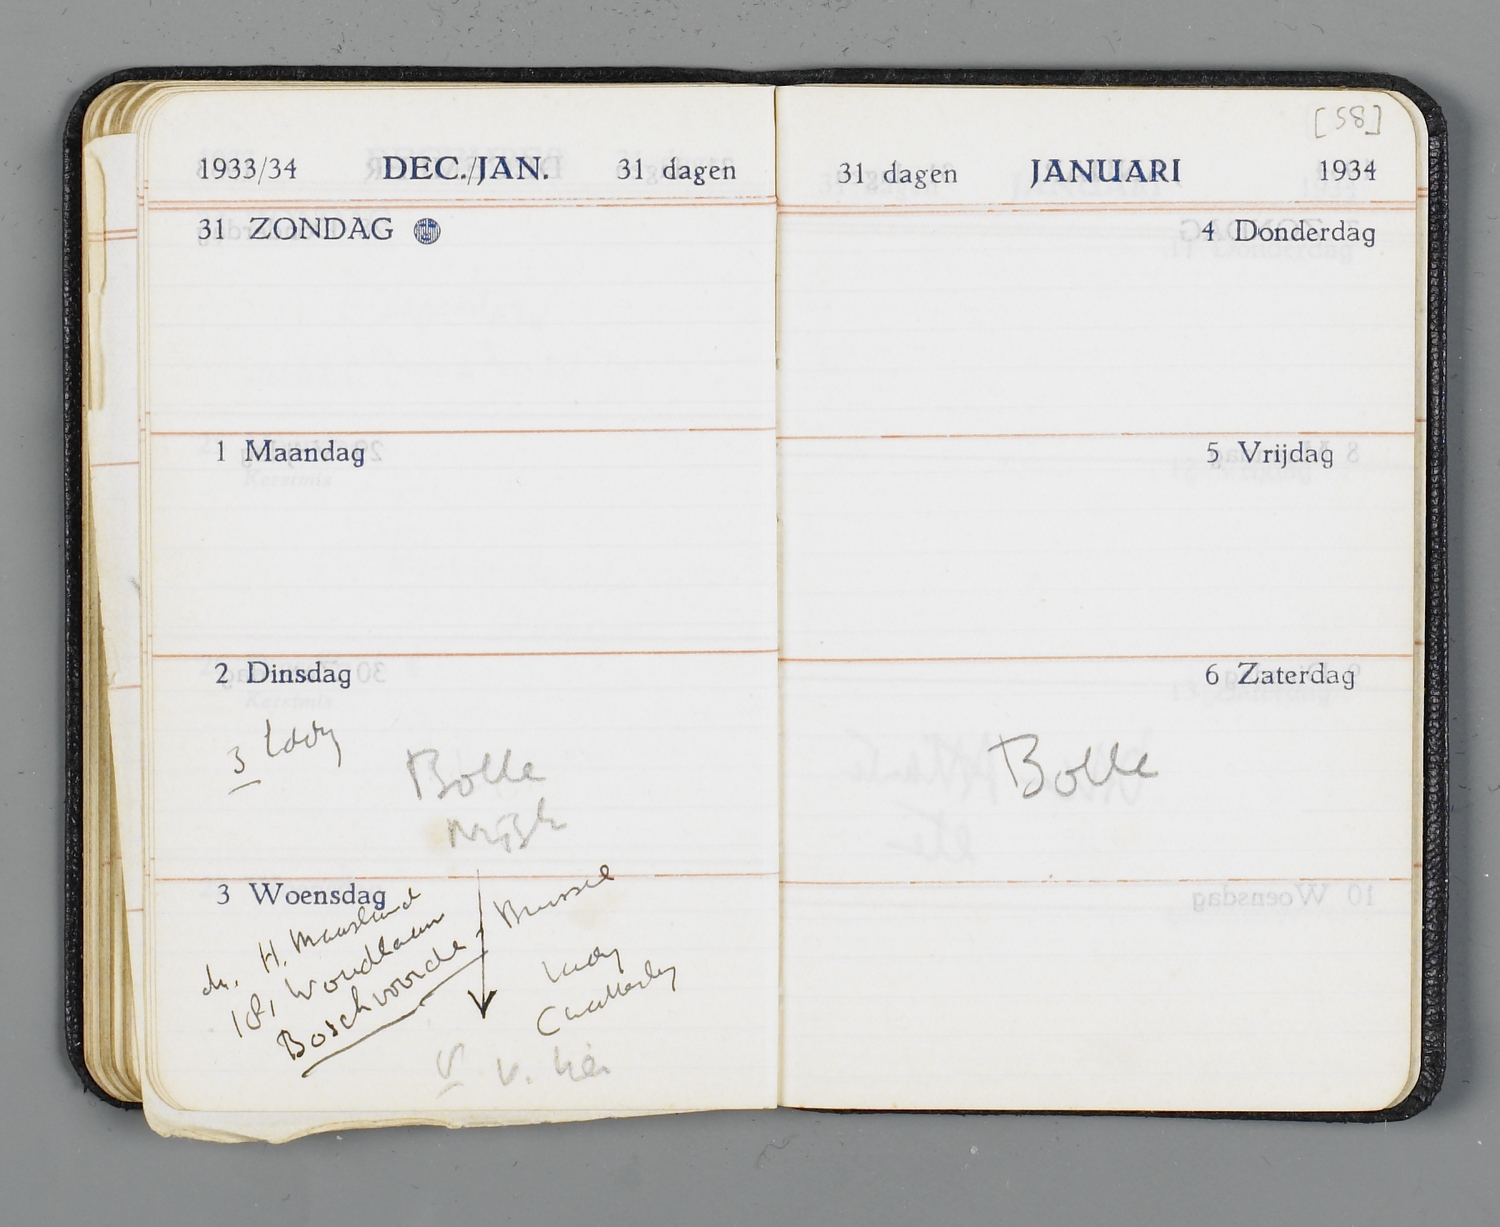 1933/34 DEC./JAN. 31 dagen
31 ZONDAG
1 Maandag
2 Dinsdag
3 Lady
Bolle
3 Woensdag
dr. H. Maasland
181 Woudlaan
Boschvoorde / Brussel
Lady
Chatterley
[58]
31 dagen JANUARI 1934
4 Donderdag
5 Vrijdag
6 Zaterdag
Bolle